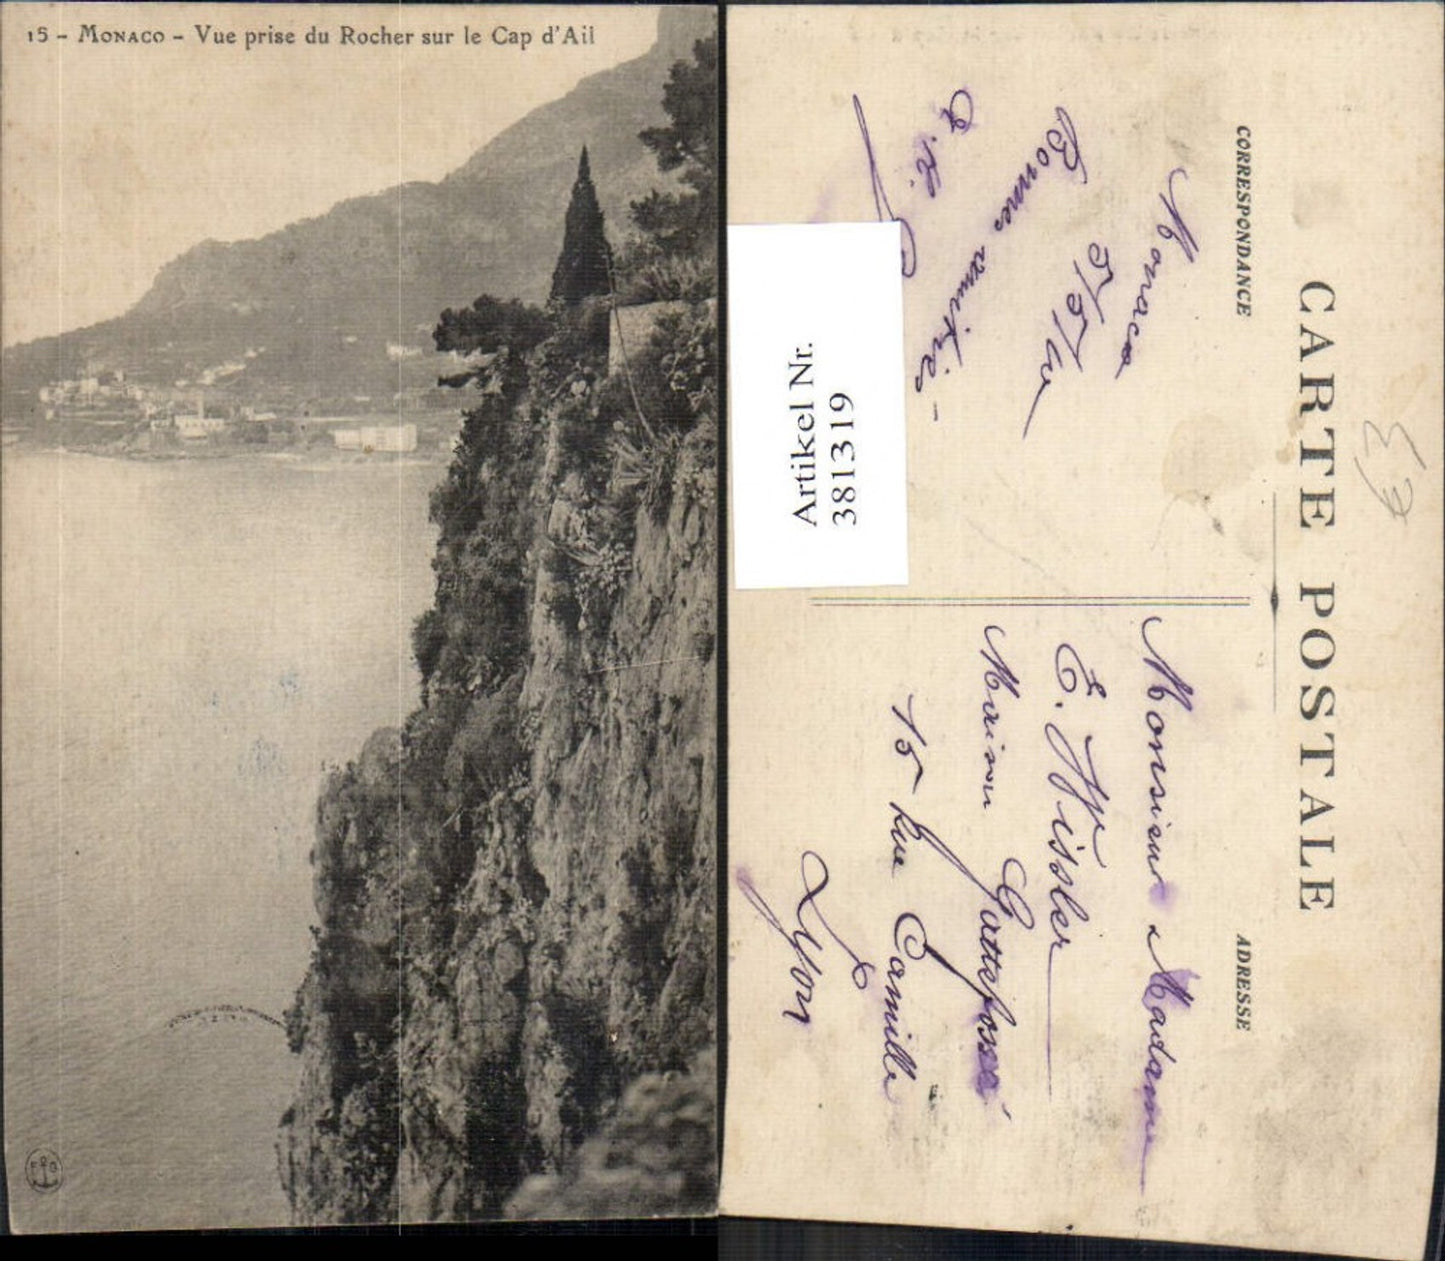 15 - MONACO - Vue prise du Rocher sur le Cap d'Ail
CARTE POSTALE
CORRESPONDANCE
ADRESSE
Monaco
5/5/
Bonnes amitiés -
Monsieur & Madame
E. Hissler
Maison Gattefossé
15 Rue Camille
Lyon
Artikel Nr.
381319